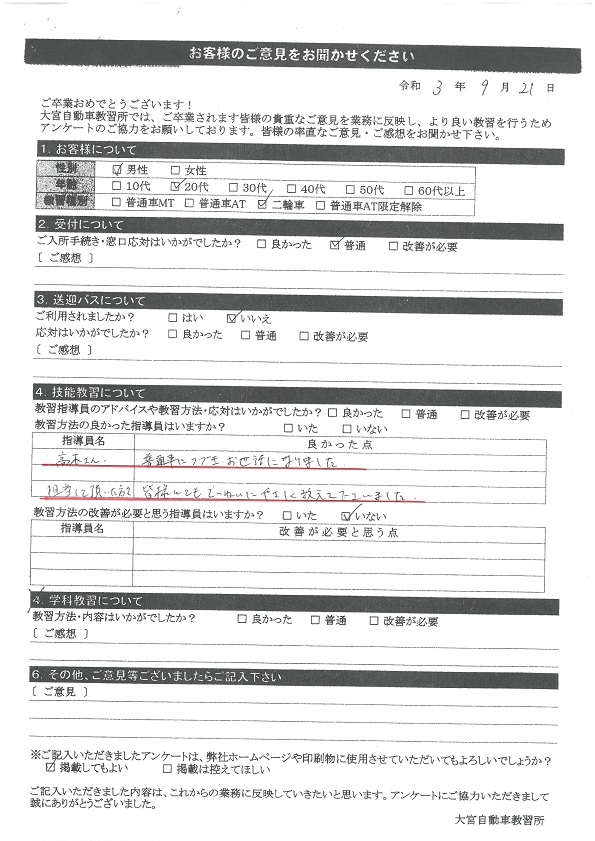 お客様のご意見をお聞かせください
令和 3 年 9 月 21 日
ご卒業おめでとうございます！
大宮自動車教習所では、ご卒業されます皆様の貴重なご意見を業務に反映し、より良い教習を行うため
アンケートのご協力をお願いしております。皆様の率直なご意見・ご感想をお聞かせ下さい。
1. お客様について
性別 ☑男性 □女性
年齢 □10代 ☑20代 □30代 □40代 □50代 □60代以上
教習種別 □普通車MT □普通車AT ☑二輪車 □普通車AT限定解除
2. 受付について
ご入所手続き・窓口応対はいかがでしたか？ □良かった ☑普通 □改善が必要
〔 ご感想 〕
3. 送迎バスについて
ご利用されましたか？ □はい ☑いいえ
応対はいかがでしたか？ □良かった □普通 □改善が必要
〔 ご感想 〕
4. 技能教習について
教習指導員のアドバイスや教習方法・応対はいかがでしたか？ □良かった □普通 □改善が必要
教習方法の良かった指導員はいますか？ □いた □いない
指導員名 良かった点
高木さん. 普通車につづきお世話になりました.
担当して頂いた方々 皆様とてもていねいにやさしく教えて下さいました.
教習方法の改善が必要と思う指導員はいますか？ □いた ☑いない
指導員名 改善が必要と思う点
4. 学科教習について
教習方法・内容はいかがでしたか？ □良かった □普通 □改善が必要
〔 ご感想 〕
6. その他、ご意見等ございましたらご記入下さい
〔 ご意見 〕
※ご記入いただきましたアンケートは、弊社ホームページや印刷物に使用させていただいてもよろしいでしょうか？
☑掲載してもよい □掲載は控えてほしい
ご記入いただきました内容は、これからの業務に反映していきたいと思います。アンケートにご協力いただきまして
誠にありがとうございました。
大宮自動車教習所